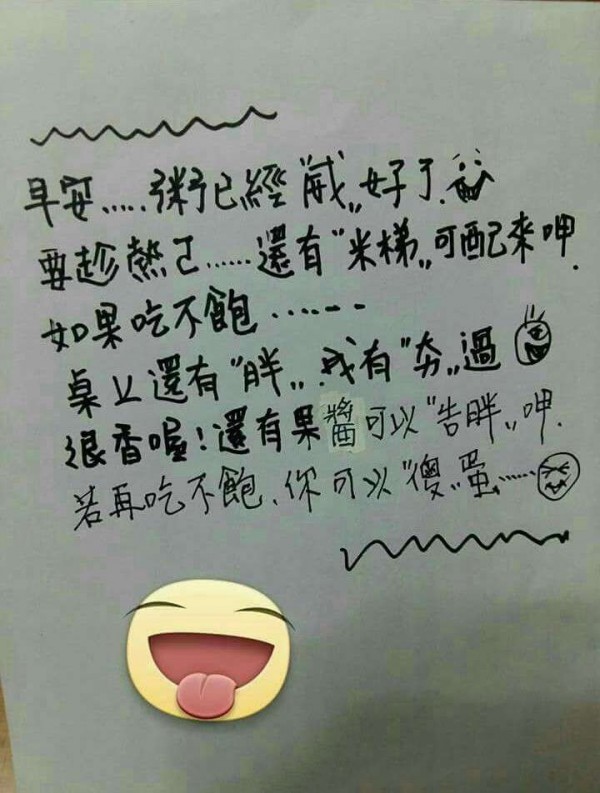 早安.....粥已經"葳"好了.
要趁熱ㄛ......還有"米梯"可配來呷.
如果吃不飽......
桌上還有"胖"..我有"夯"過
很香喔!還有果醬可以"告胖"呷.
若再吃不飽、你可以"傻"蛋......